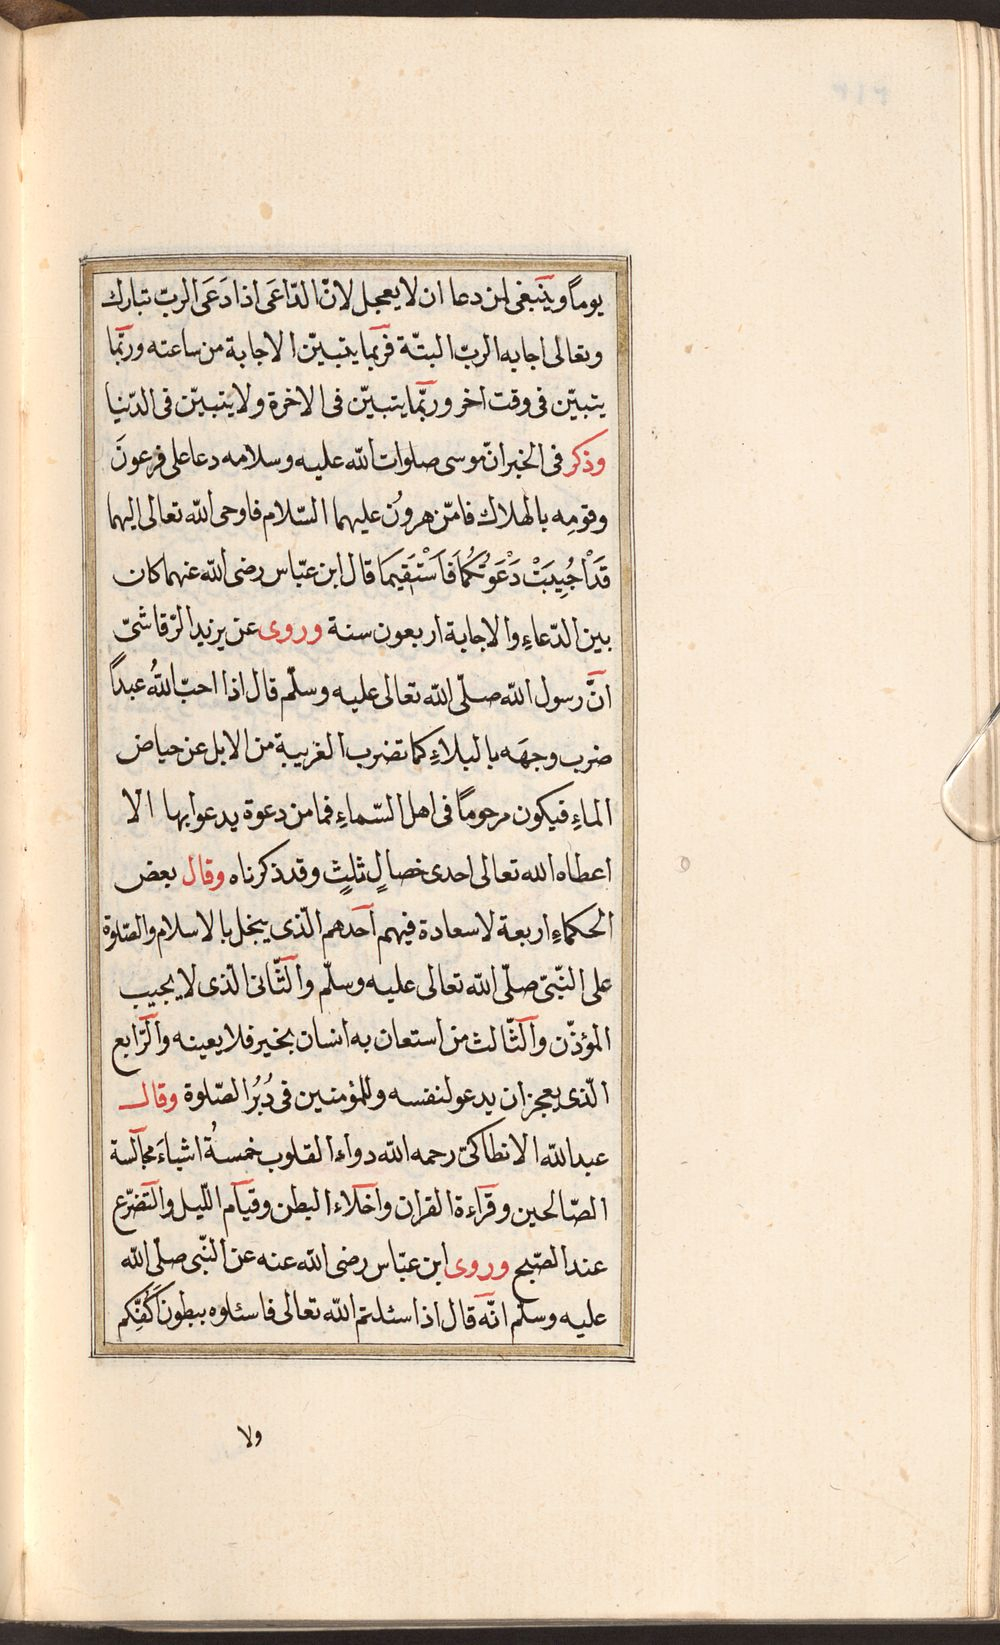 يوماً وينبغى لمن دعا ان لا يعجل لانّ الدّاعَى اذا دَعَى الربّ تبارك
وتعالى اجابه الربّ البتّة فربّما يتبيّن الاجابة من ساعته وربّما
يتبيّن فى وقت اخر وربّما يتبيّن فى الاخرة ولا يتبيّن فى الدّنيا
وذكر فى الخبر انّ موسى صلوات الله عليه وسلامه دعا على فرعونَ
وقومِه بالهلاك فامّن هرونُ عليهما السّلام فاوحى الله تعالى اليهما
قَدْ اُجِيبَتْ دَعْوَتُكُمَا فَاسْتَقِيمَا قال ابن عبّاس رضى الله عنهما كان
بين الدّعاءِ والاجابة اربعون سنة وروى عن يزيد الرّقاشىّ
انّ رسول الله صلّى الله تعالى عليه وسلّم قال اذا احبّ اللهُ عبداً
ضرب وجهَه بالبلاءِ كما تضرب الغريبة من الابل عن حياض
الماءِ فيكون مرحوماً فى اهل السّماءِ فما من دعوة يدعوا بها الا
اعطاه الله تعالى احدى خصالٍ ثلثٍ وقد ذكرناه وقال بعض
الحكماءِ اربعة لا سعادة فيهم احدهم الّذى يبخل بالاسلام والصّلوة
على النّبىّ صلّى الله تعالى عليه وسلّم والثّانى الّذى لا يجيب
المؤذّن والثّالث من استعان به انسان بخير فلا يعينه والرّابع
الّذى يعجز ان يدعو لنفسه وللمؤمنين فى دُبُر الصّلوة وقال
عبد الله الانطاكىّ رحمه الله دواء القلوب خمسةُ اشياءَ مجالسة
الصّالحين وقراءة القران واخلاء البطن وقيام اللّيل والتّضرّع
عند الصّبح وروى ابن عبّاس رضى الله عنه عن النّبى صلّى الله
عليه وسلّم انّه قال اذا سئلتم الله تعالى فاسئلوه ببطون اَكُفِّكم
ولا